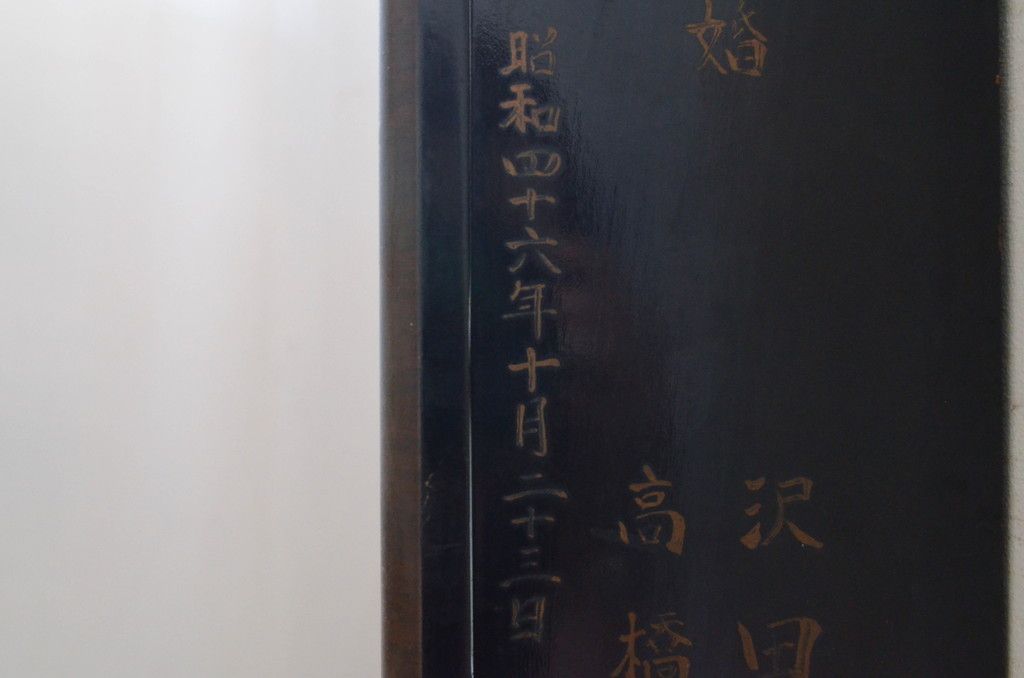 婚
沢田
高橋
昭和四十六年十月二十三日